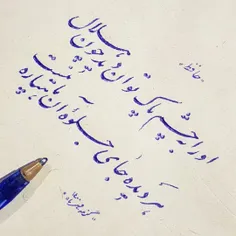 حافظ
او را به چشم پاک توان دید چون هلال
هر دیده جای جلوهٔ آن ماهپاره نیست